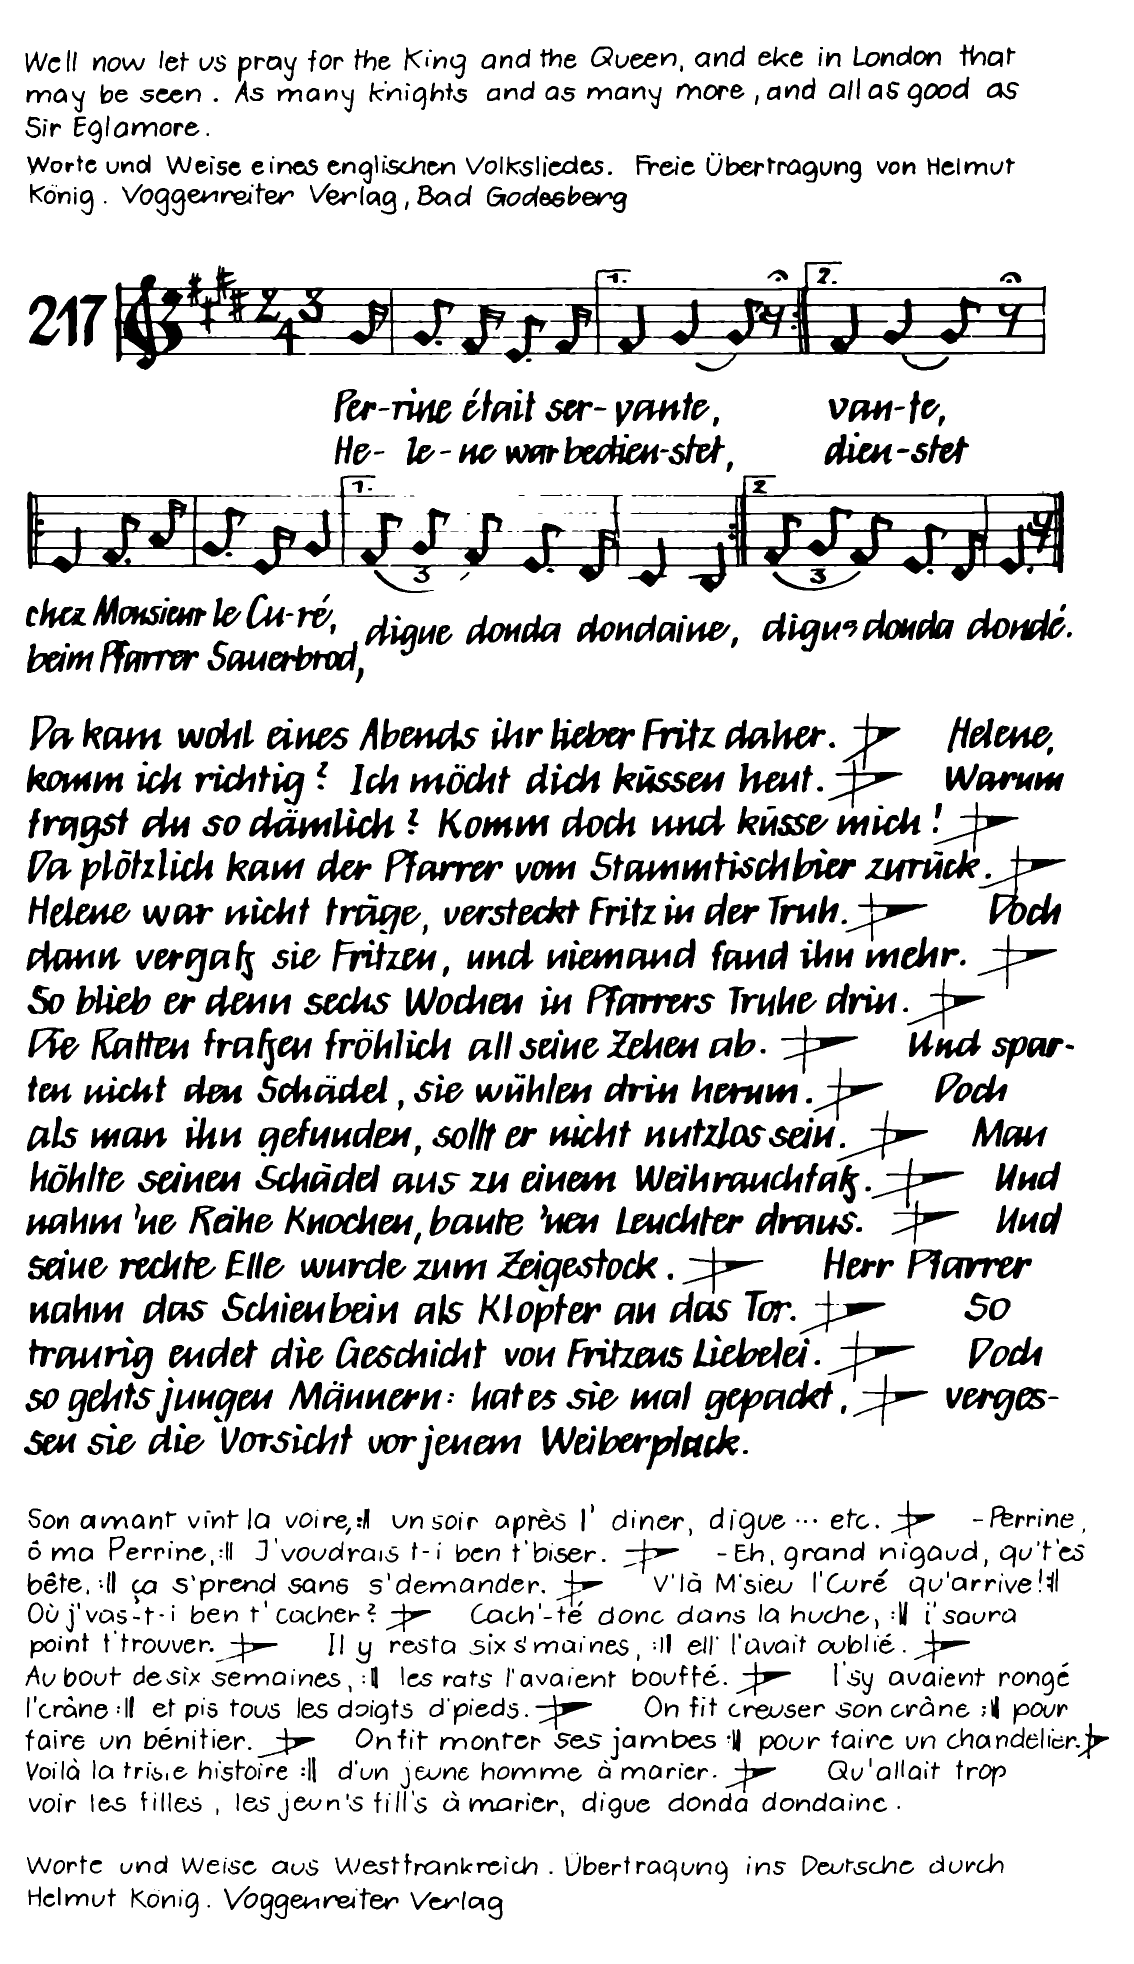 Well now let us pray for the King and the Queen, and eke in London that
may be seen. As many knights and as many more, and all as good as
Sir Eglamore.
Worte und Weise eines englischen Volksliedes. Freie Übertragung von Helmut
König. Voggenreiter Verlag, Bad Godesberg
217
2 3
4
1. 2.
Per-rine était ser-vante, van-te,
He- le-ne war bedien-stet, dien-stet
1. 2
3 3
chez Monsieur le Cu-ré,
digue donda dondaine, digue donda dondé.
beim Pfarrer Sauerbrod,
Da kam wohl eines Abends ihr lieber Fritz daher. Helene,
komm ich richtig? Ich möcht dich küssen heut. Warum
fragst du so dämlich? Komm doch und küsse mich!
Da plötzlich kam der Pfarrer vom Stammtischbier zurück.
Helene war nicht träge, versteckt Fritz in der Truh. Doch
dann vergaß sie Fritzen, und niemand fand ihn mehr.
So blieb er denn sechs Wochen in Pfarrers Truhe drin.
Die Ratten fraßen fröhlich all seine Zehen ab. Und spar-
ten nicht den Schädel, sie wühlen drin herum. Doch
als man ihn gefunden, sollt er nicht nutzlos sein. Man
höhlte seinen Schädel aus zu einem Weihrauchfaß. Und
nahm 'ne Reihe Knochen, baute 'nen Leuchter draus. Und
seine rechte Elle wurde zum Zeigestock. Herr Pfarrer
nahm das Schienbein als Klopfer an das Tor. So
traurig endet die Geschicht von Fritzens Liebelei. Doch
so gehts jungen Männern: hat es sie mal gepackt, verges-
sen sie die Vorsicht vor jenem Weiberpack.
Son amant vint la voire, :|| un soir après l' diner, digue ... etc. - Perrine,
ô ma Perrine, :|| J'voudrais t-i ben t'biser. - Eh, grand nigaud, qu't'es
bête, :|| ça s'prend sans s'demander. V'là M'sieu l'Curé qu'arrive! :||
Où j'vas-t-i ben t'cacher? Cach'-té donc dans la huche, :|| i'saura
point t'trouver. Il y resta six s'maines, :|| ell' l'avait oublié.
Au bout de six semaines, :|| les rats l'avaient bouffé. I'sy avaient rongé
l'crâne :|| et pis tous les doigts d'pieds. On fit creuser son crâne :|| pour
faire un bénitier. On fit monter ses jambes :|| pour faire un chandelier.
Voilà la triste histoire :|| d'un jeune homme à marier. Qu'allait trop
voir les filles, les jeun's fill's à marier, digue donda dondaine.
Worte und Weise aus Westfrankreich. Übertragung ins Deutsche durch
Helmut König. Voggenreiter Verlag